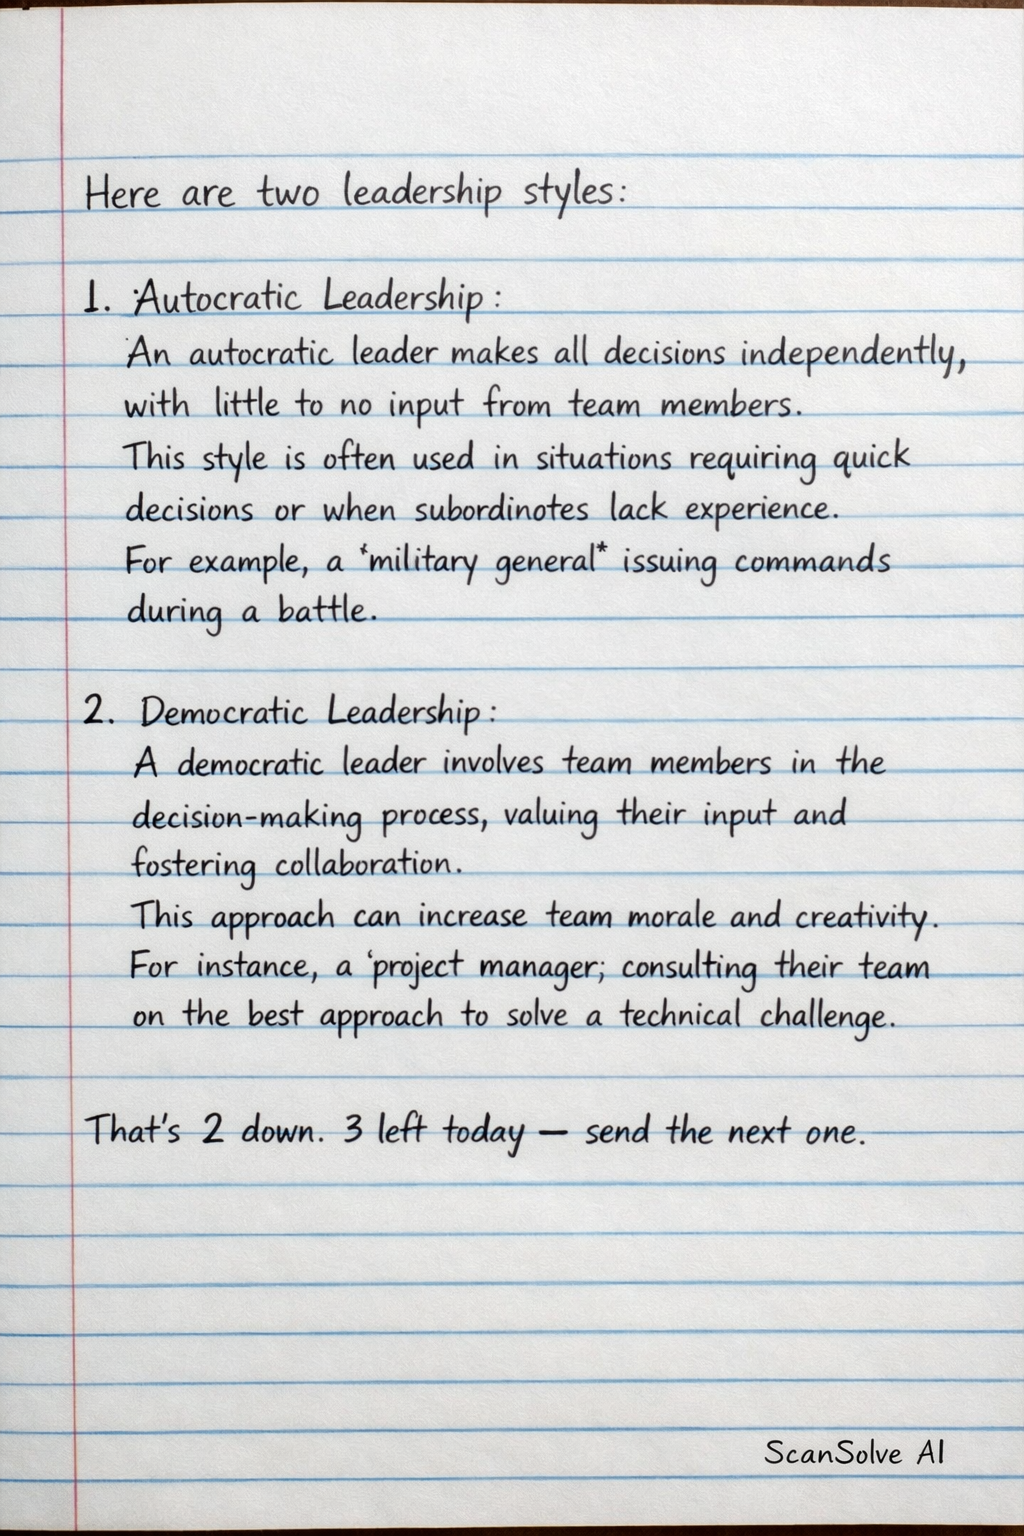 Here are two leadership styles:
1. Autocratic Leadership:
An autocratic leader makes all decisions independently,
with little to no input from team members.
This style is often used in situations requiring quick
decisions or when subordinotes lack experience.
For example, a *military general* issuing commands
during a battle.
2. Democratic Leadership:
A democratic leader involves team members in the
decision-making process, valuing their input and
fostering collaboration.
This approach can increase team morale and creativity.
For instance, a 'project manager; consulting their team
on the best approach to solve a technical challenge.
That's 2 down. 3 left today — send the next one.
ScanSolve AI